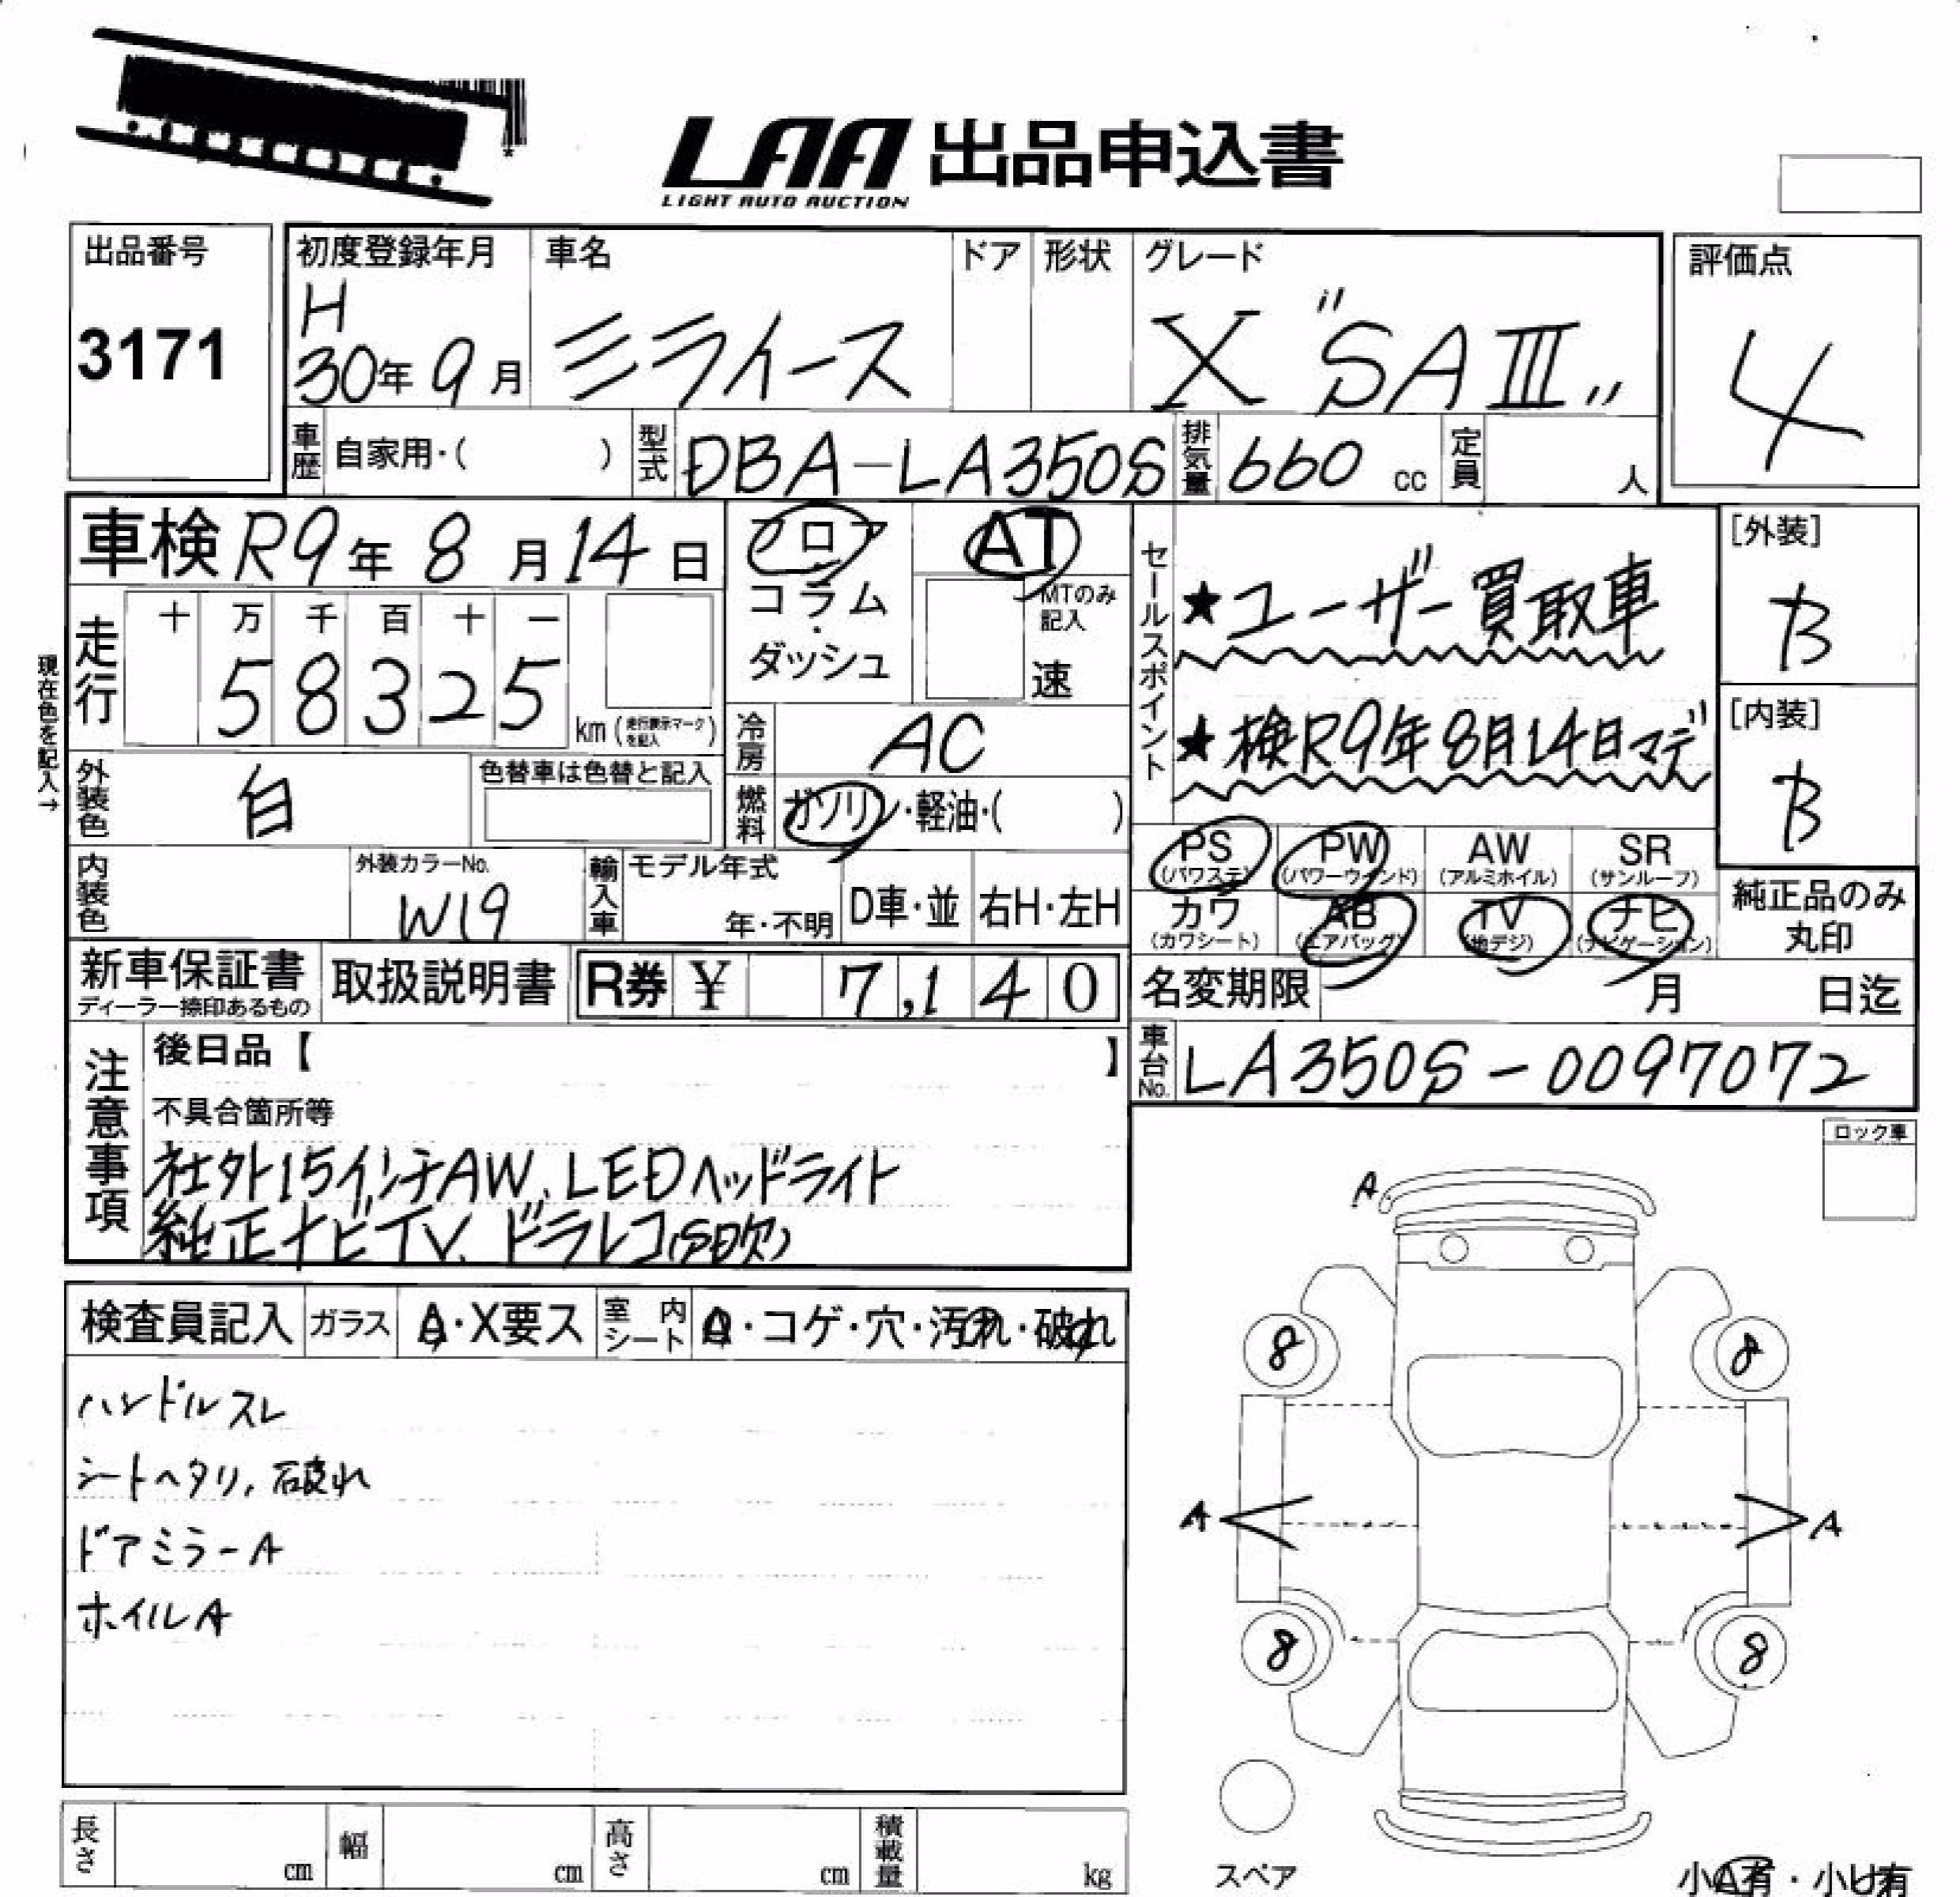 LAA 出品申込書
LIGHT AUTO AUCTION
出品番号
3171
初度登録年月
H
30年 9月
車名
ミライース
ドア
形状
グレード
X "SAⅢ"
評価点
4
車歴
自家用・( )
型式
DBA-LA350S
排気量
660 cc
定員
人
車検 R9年 8月 14日
フロア
コラム
・
ダッシュ
AT
MTのみ
記入
速
セールスポイント
★ユーザー買取車
★検R9年8月14日マデ
[外装]
B
[内装]
B
現在色を記入→
走行
十 万 千 百 十 一
5 8 3 2 5
km (走行表示マークを記入)
冷房
AC
外装色
白
色替車は色替と記入
燃料
ガソリン・軽油・( )
PS
(パワステ)
PW
(パワーウインド)
AW
(アルミホイル)
SR
(サンルーフ)
カワ
(カワシート)
AB
(エアバッグ)
TV
(地デジ)
ナビ
(ナビゲーション)
純正品のみ
丸印
内装色
外装カラーNo.
W19
輸入車
モデル年式
年・不明
D車・並
右H・左H
新車保証書
ディーラー捺印あるもの
取扱説明書
R券 ¥ 7,140
名変期限 月 日迄
車台No.
LA350S-0097072
注意事項
後日品【 】
不具合箇所等
社外15インチAW、LEDヘッドライト
純正ナビTV、ドラレコ(SD欠)
ロック車
検査員記入
ガラス
A・X要ス
室内シート
・コゲ・穴・汚れ・破れ
ハンドルスレ
シートヘタリ、破れ
ドアミラーA
ホイルA
A
8
8
A
A
8
8
スペア
小A有・小U有
長さ
cm
幅
cm
高さ
cm
積載量
kg